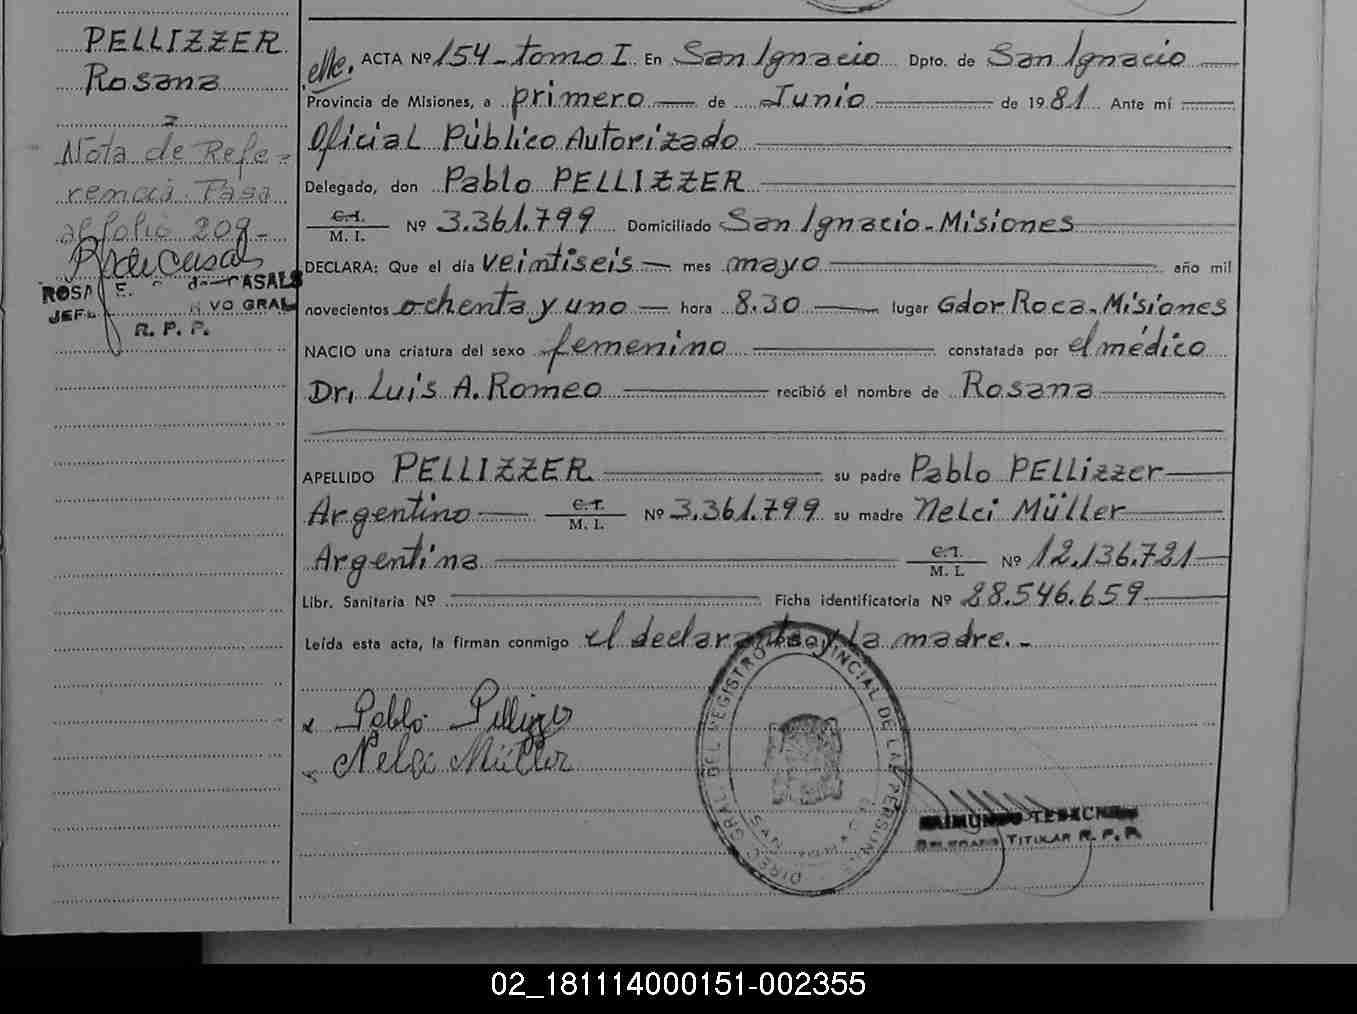 PELLIZZER
Rosana
Nota de Refe-
rencia Pasa
al folio 209-
ROSA E. CASALS
JEFE VO GRAL
R. P. P.
ACTA Nº 154 - tomo I. En San Ignacio Dpto. de San Ignacio
Provincia de Misiones, a primero de Junio de 1981 Ante mí
Oficial Público Autorizado
Delegado, don Pablo PELLIZZER
C.I.
M. I. Nº 3.361.799 Domiciliado San Ignacio - Misiones
DECLARA: Que el día veintiseis mes mayo año mil
novecientos ochenta y uno hora 8.30 lugar Gdor Roca. Misiones
NACIO una criatura del sexo femenino constatada por el médico
Dr. Luis A. Romeo recibió el nombre de Rosana
APELLIDO PELLIZZER su padre Pablo PELLizzer
Argentino C.I. M. I. Nº 3.361.799 su madre Nelci Müller
Argentina C.I. M. I. Nº 12.136.721
Libr. Sanitaria Nº Ficha identificatoria Nº 28.546.659
Leída esta acta, la firman conmigo el declarante y la madre.-
x Pablo Pellizzer
x Nelci Müller
DIREC. GRAL. DEL REGISTRO PROVINCIAL DE LAS PERSONAS
DELEGADO TITULAR R. P. P.
02_181114000151-002355